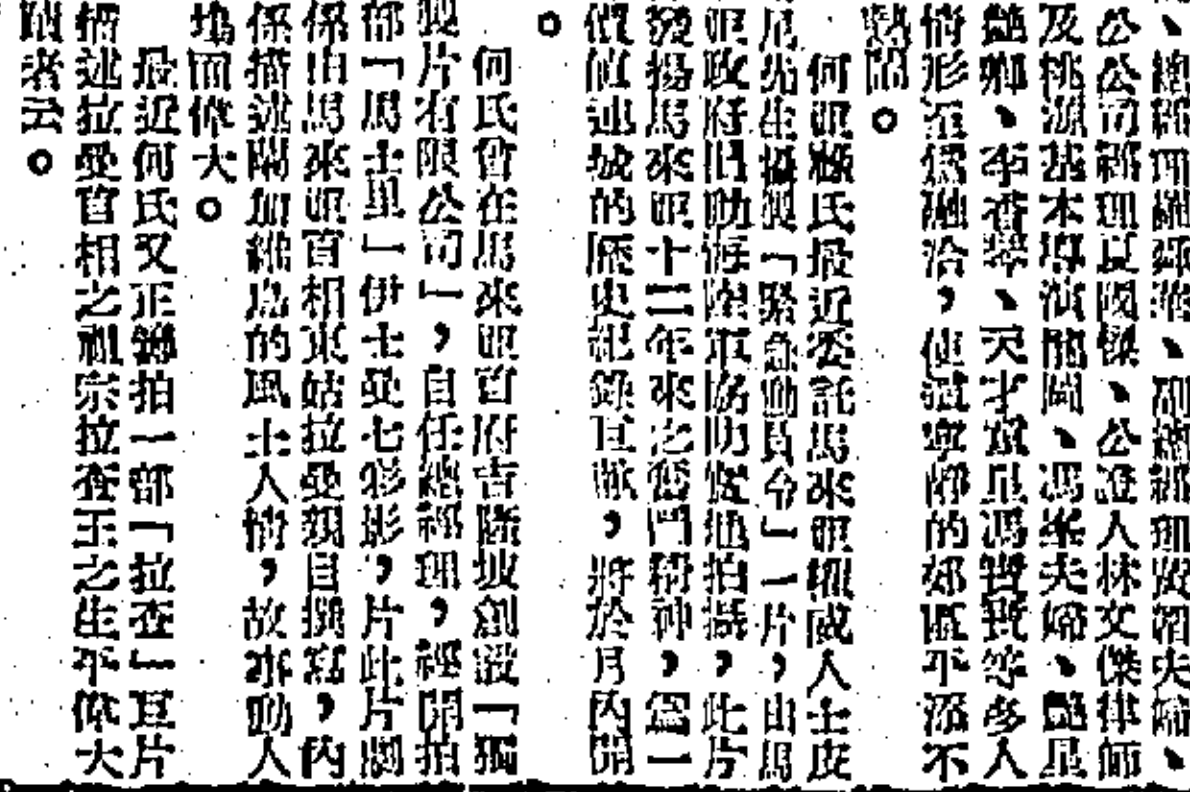 、總經理羅郊港、副總經理皮紹夫婦、
公公司經理夏國傑、公證人林文傑律師
及桃源基本導演龍岡、馮峯夫婦、艷星
艷卿、李香琴、天才童星馮寶寶等多人
情形至為融洽，使寂寧靜的郊區平添不
熱鬧。
何亞祿氏最近委託馬來亞權威人士皮
先生攝製「緊急動員令」一片，由馬
亞政府借助海陸軍協助實地拍攝，此片
發揚馬來亞十二年來之奮鬥精神，為一
價值連城的歷史紀錄巨献，將於月內開
。
何氏曾在馬來亞首府吉隆坡創設「獨
製片有限公司」，自任總經理，經開拍
部「馬士里」伊士曼七彩影，片此片劇
係由馬來亞首相東姑拉曼親自撰寫，內
係描述浮加維島的風土人情，故事動人
塲而偉大。
最近何氏又正籌拍一部「拉查」巨片
描述拉曼首相之祖宗拉查王之生平偉大
蹟者云。